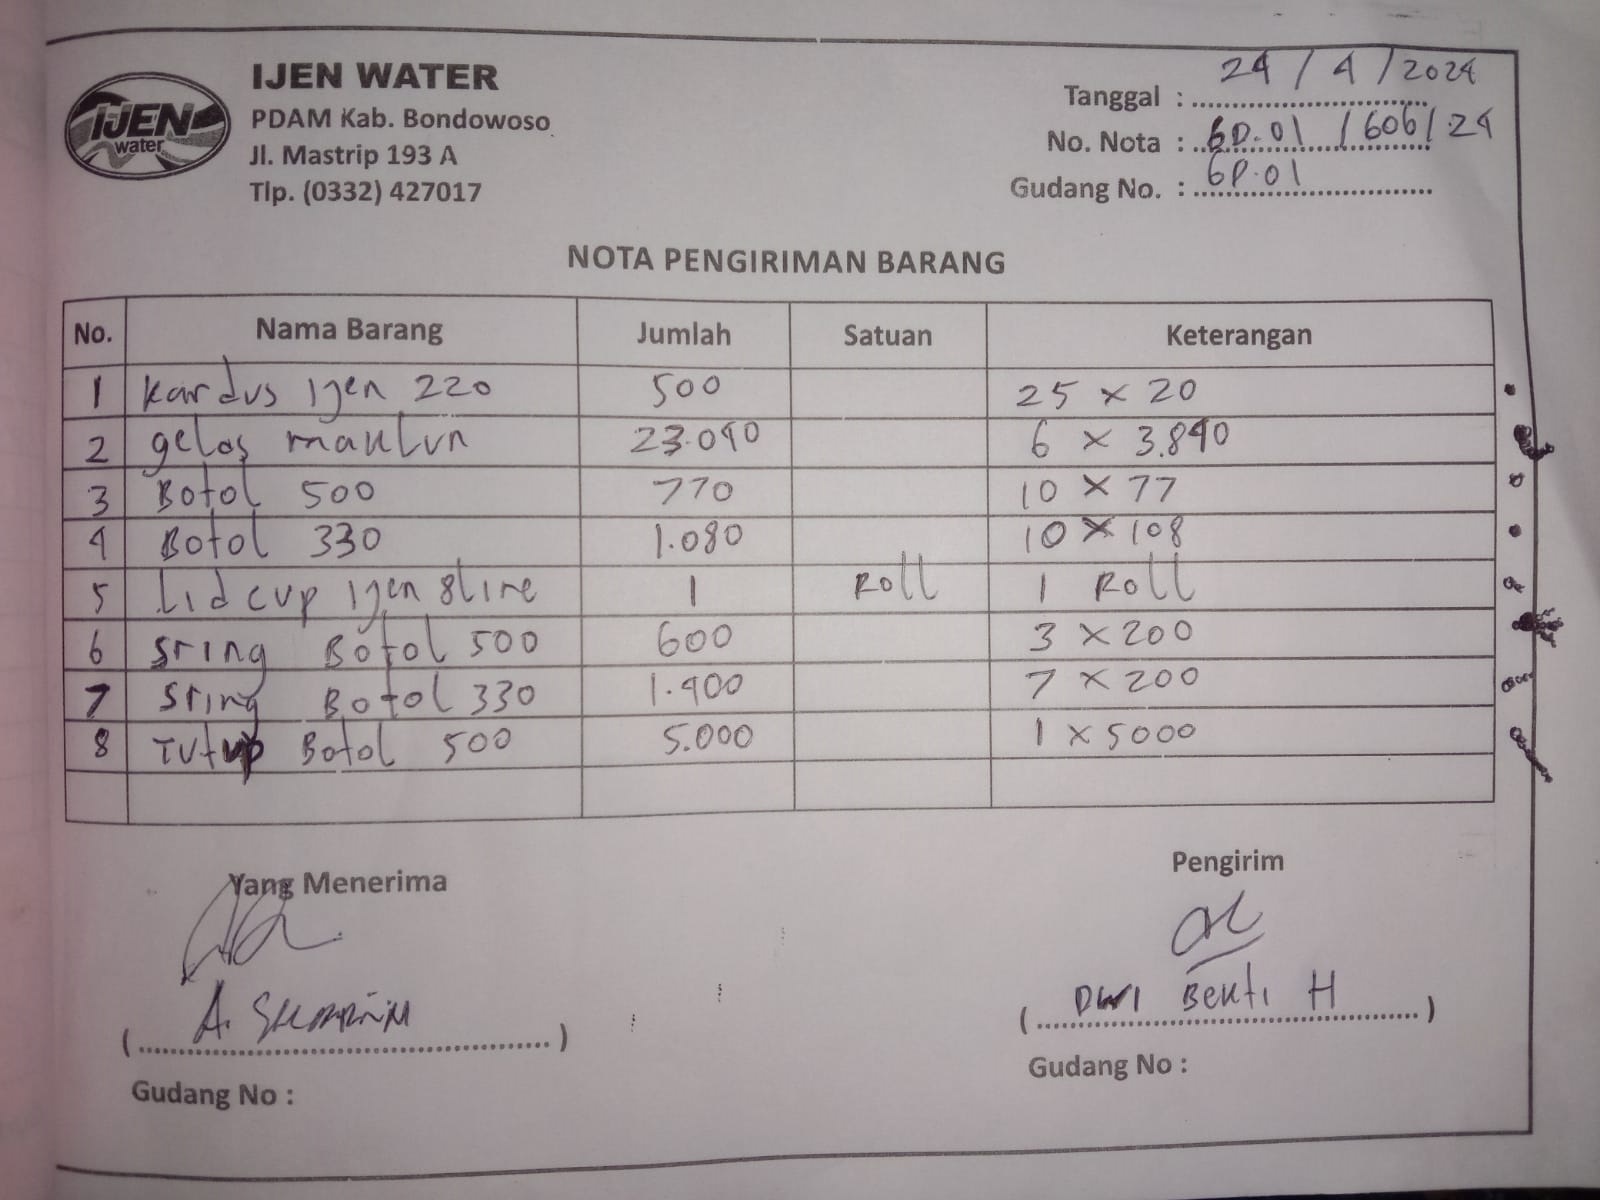 IJEN WATER
PDAM Kab. Bondowoso
Jl. Mastrip 193 A
Tlp. (0332) 427017
IJEN
water
Tanggal : 24 / 4 / 2024
No. Nota : GD.01 / 606 / 24
Gudang No. : GD.01
NOTA PENGIRIMAN BARANG
No. Nama Barang Jumlah Satuan Keterangan
1 Kardus Ijen 220 500 25 x 20
2 gelas maklun 23.040 6 x 3.840
3 Botol 500 770 10 x 77
4 Botol 330 1.080 10 x 108
5 Lid cup Ijen 8 line 1 Roll 1 Roll
6 Sring Botol 500 600 3 x 200
7 Sring Botol 330 1.400 7 x 200
8 Tutup Botol 500 5.000 1 x 5000
Yang Menerima
Pengirim
( A. )
( Dwi Bekti H )
Gudang No :
Gudang No :